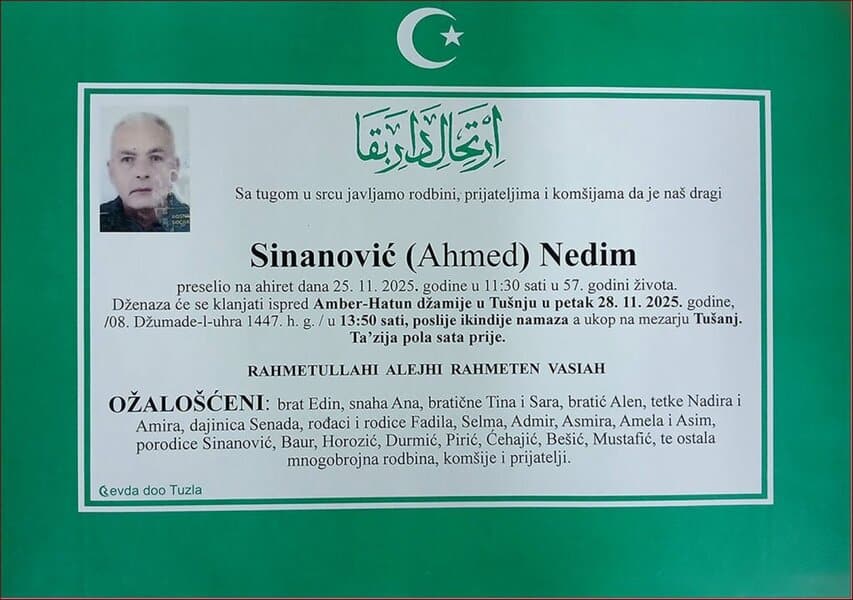 اِرْتِحَالِ دَارِ بَقَا
Sa tugom u srcu javljamo rodbini, prijateljima i komšijama da je naš dragi
Sinanović (Ahmed) Nedim
preselio na ahiret dana 25. 11. 2025. godine u 11:30 sati u 57. godini života.
Dženaza će se klanjati ispred Amber-Hatun džamije u Tušnju u petak 28. 11. 2025. godine,
/08. Džumade-l-uhra 1447. h. g. / u 13:50 sati, poslije ikindije namaza a ukop na mezarju Tušanj.
Ta’zija pola sata prije.
RAHMETULLAHI ALEJHI RAHMETEN VASIAH
OŽALOŠĆENI: brat Edin, snaha Ana, bratične Tina i Sara, bratić Alen, tetke Nadira i
Amira, dajinica Senada, rođaci i rodice Fadila, Selma, Admir, Asmira, Amela i Asim,
porodice Sinanović, Baur, Horozić, Durmić, Pirić, Ćehajić, Bešić, Mustafić, te ostala
mnogobrojna rodbina, komšije i prijatelji.
evda doo Tuzla